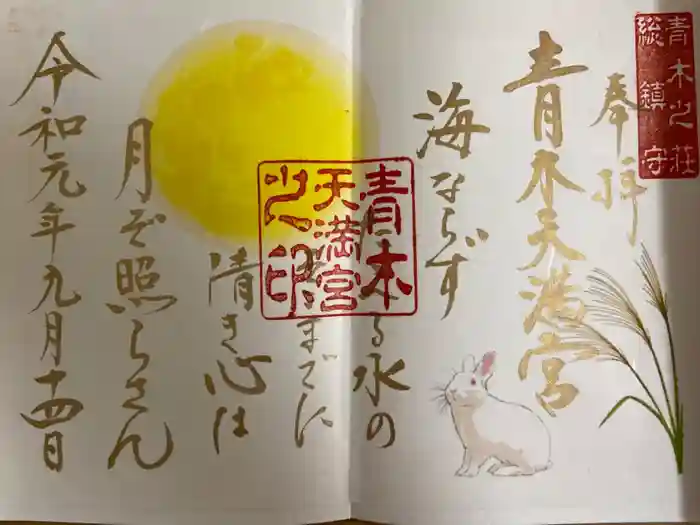 青木之荘
総鎮守
奉拝
青木天満宮
海ならず
る水の
までに
清き心は
月ぞ照らさん
令和元年九月十四日
青木
天満宮
之印